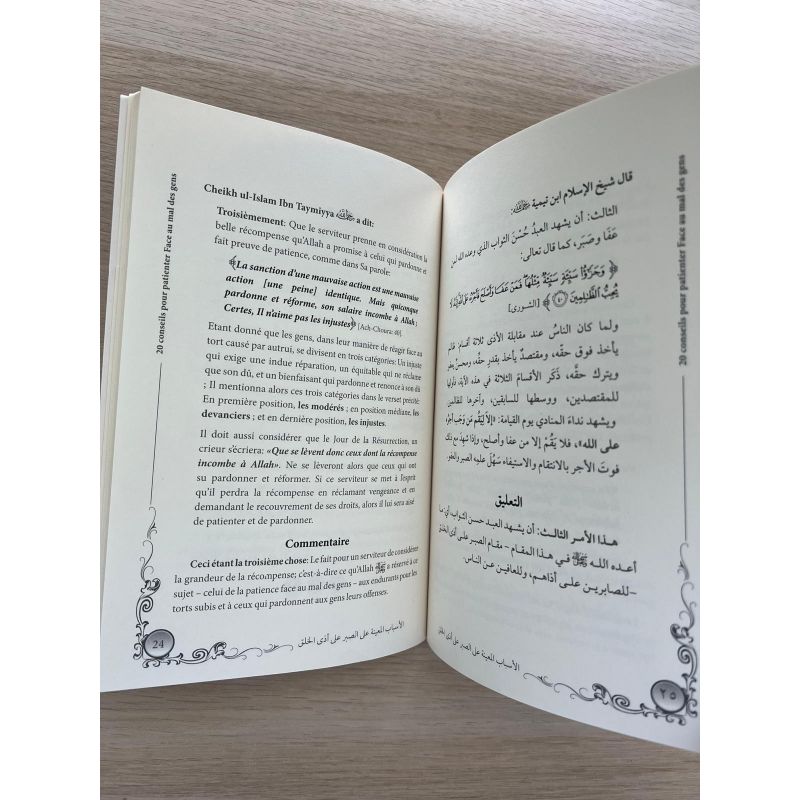 20 conseils pour patienter Face au mal des gens
Cheikh ul-Islam Ibn Taymiyya a dit:
Troisièmement: Que le serviteur prenne en considération la
belle récompense qu'Allah a promise à celui qui pardonne et
fait preuve de patience, comme dans Sa parole:
﴾La sanction d'une mauvaise action est une mauvaise
action [une peine] identique. Mais quiconque
pardonne et réforme, son salaire incombe à Allah ;
Certes, Il n'aime pas les injustes﴿ [Ach-Choura: 40].
Etant donné que les gens, dans leur manière de réagir face au
tort causé par autrui, se divisent en trois catégories: Un injuste
qui exige une indue réparation, un équitable qui ne réclame
que son dû, et un bienfaisant qui pardonne et renonce à son dû
; Il mentionna alors ces trois catégories dans le verset précité:
En première position, les modérés ; en position médiane, les
devanciers ; et en dernière position, les injustes.
Il doit aussi considérer que le Jour de la Résurrection, un
crieur s'écriera: «Que se lèvent donc ceux dont la récompense
incombe à Allah». Ne se lèveront alors que ceux qui ont
su pardonner et réformer. Si ce serviteur se met à l'esprit
qu'il perdra la récompense en réclamant vengeance et en
demandant le recouvrement de ses droits, alors il lui sera aisé
de patienter et de pardonner.
Commentaire
Ceci étant la troisième chose: Le fait pour un serviteur de considérer
la grandeur de la récompense; c'est-à-dire ce qu'Allah ﷻ a réservé à ce
sujet – celui de la patience face au mal des gens – aux endurants pour les
torts subis et à ceux qui pardonnent aux gens leurs offenses.
24
الأسباب المعينة على الصبر على أذى الخلق
20 conseils pour patienter Face au mal des gens
قال شيخ الإسلام ابن تيمية:
الثالث: أن يشهد العبدُ حُسْنَ الثواب الذي وعده الله لمن
عَفَا وصَبَر، كما قال تعالى:
﴿ وَجَزَٰٓؤُاْ سَيِّئَةٖ سَيِّئَةٞ مِّثۡلُهَاۖ فَمَنۡ عَفَا وَأَصۡلَحَ فَأَجۡرُهُۥ عَلَى ٱللَّهِۚ إِنَّهُۥ لَا
يُحِبُّ ٱلظَّٰلِمِينَ ٤٠ ﴾ [الشورى]
ولما كان الناسُ عند مقابلة الأذى ثلاثة أقسام: ظالم
يأخذ فوق حقّه، ومقتصدٌ يأخذ بقدرِ حقِّه، ومحسنٌ يعفو
ويترك حقَّه، ذَكَر الأقسامَ الثلاثة في هذه الآية، فأولها
للمقتصدين، ووسطها للسابقين، وآخرها للظالمين
ويشهد نداءَ المنادي يوم القيامة: «إلاَّ لِيَقُم مَن وَجَب أجرُه
على الله»، فلا يَقُمْ إلا من عفا وأصلح، وإذا شهِدَ مع ذلك
فوتَ الأجر بالانتقام والاستيفاء سَهُلَ عليه الصبر والعفو.
التعليق
هذا الأمر الثالث: أن يشهد العبد حسن الثواب؛ أي: ما
أعده الله ﷻ في هذا المقام - مقام الصبر على أذى الخلق
-للصابرين على أذاهم، وللعافين عن الناس.
الأسباب المعينة على الصبر على أذى الخلق
٢٥